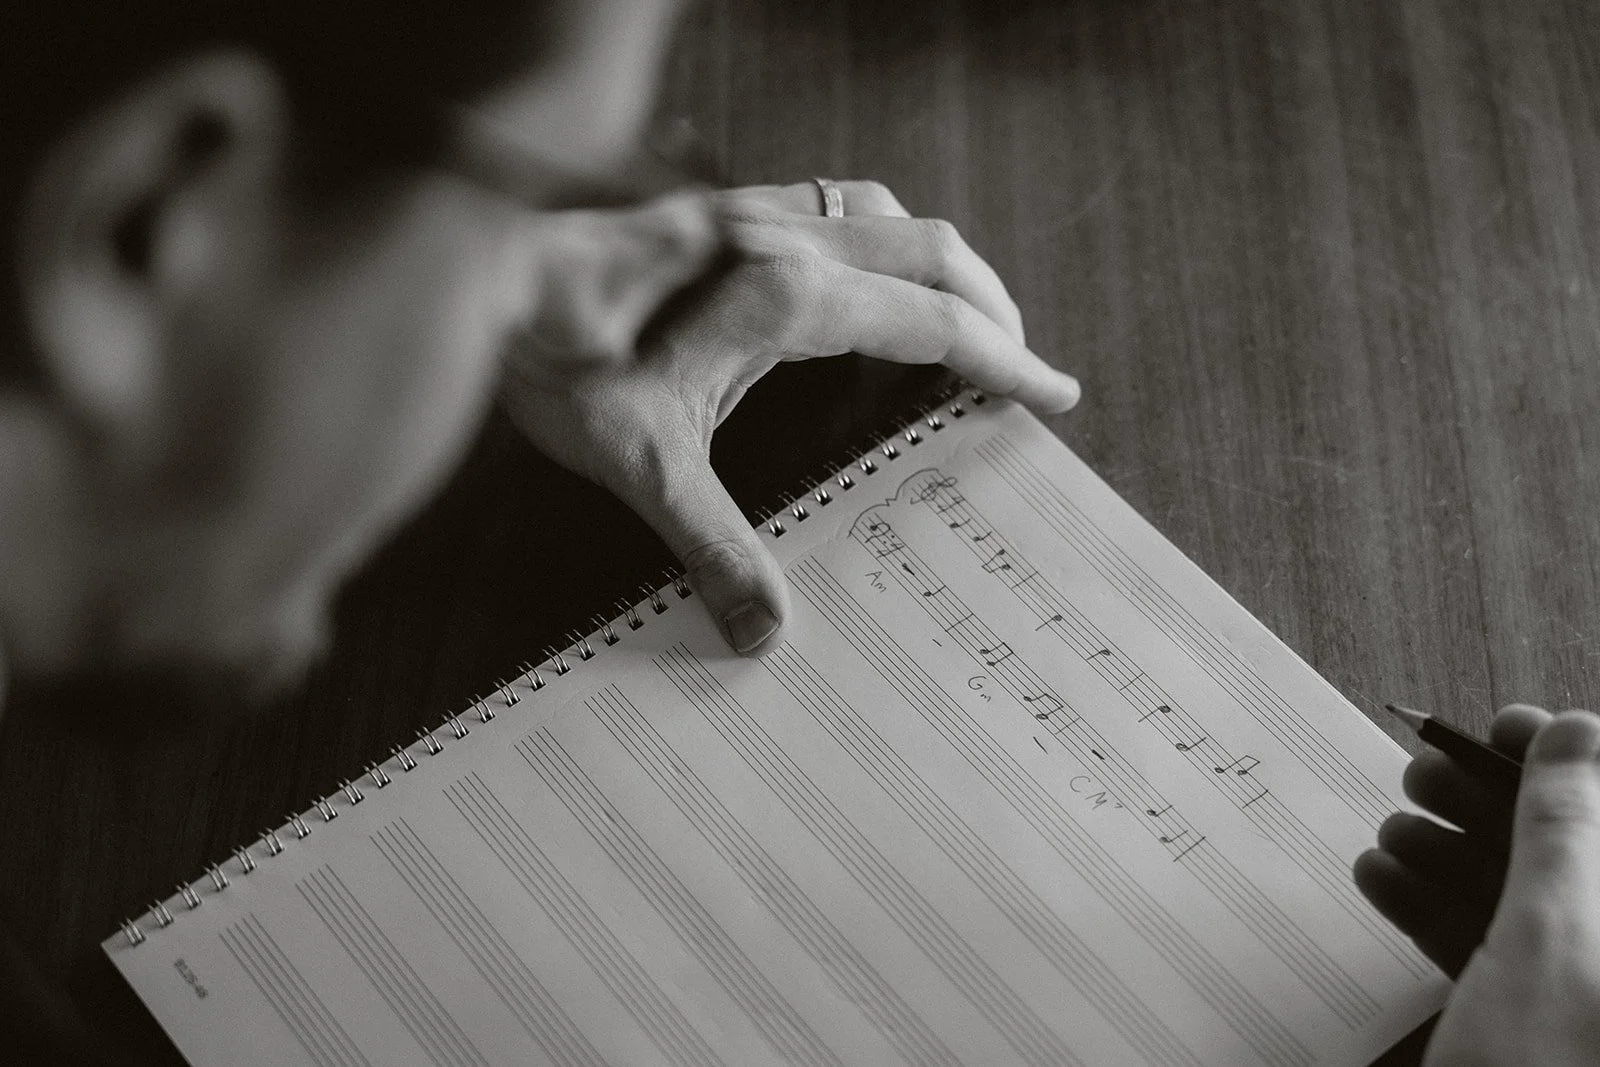 Am - Gm - CM7